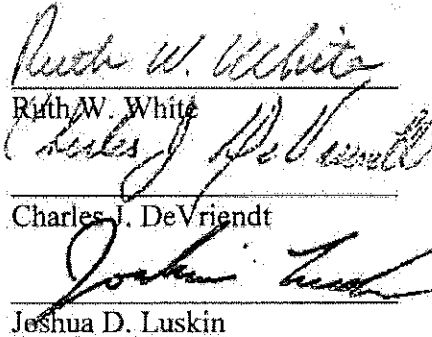 Ruth W. White
Ruth W. White
Charles J. DeVriendt
Charles J. DeVriendt
Joshua Lusk
Joshua D. Luskin